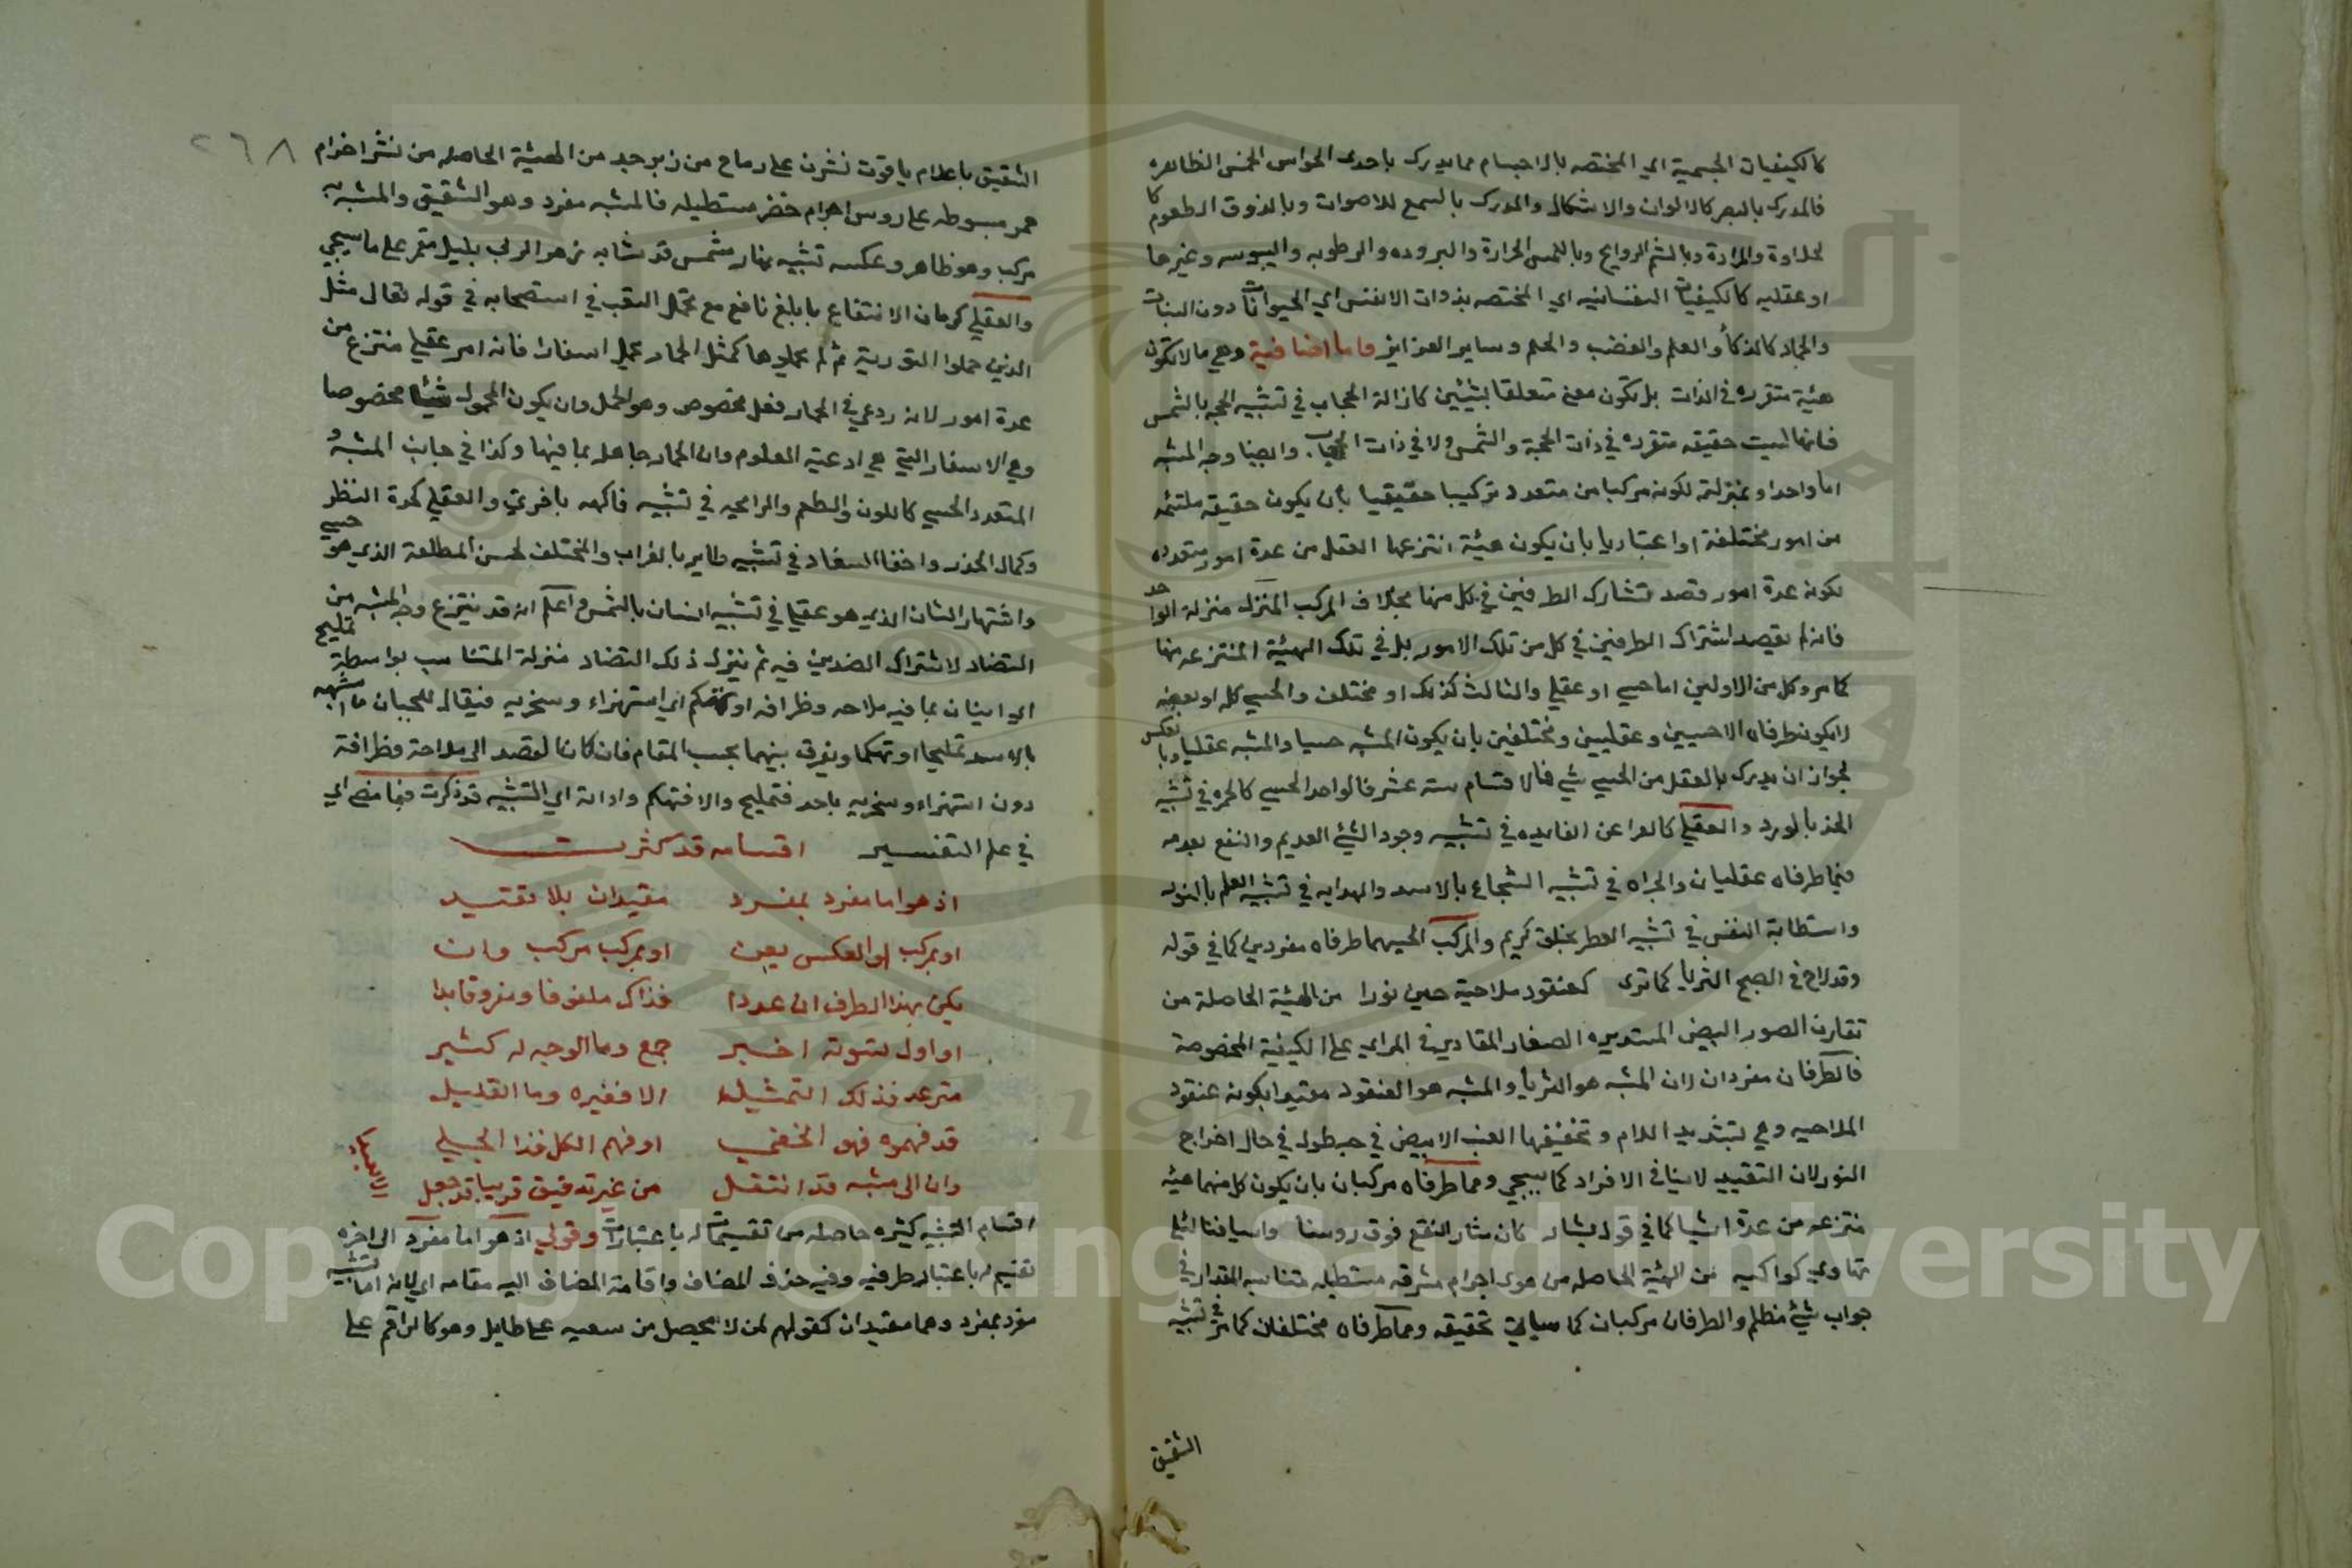 كالكيفيات الجسمية اي المختصه بالاجسام مما يدرك باحدى الحواس الخمس الظاهره
فالمدرك بالبصر كالالوان والاشكال والمدرك بالسمع للاصوات وبالذوق الطعوم كا
لحلاوة والمرارة وبالشم الروايح وباللمس الحرارة والبروده والرطوبه واليبوسه وغيرها
او عقليه كالكيفيات النفسانيه اي المختصه بذوات الانفس اي الحيوانات دون النبات
والجماد كالذكأ والعلم والغضب والحلم وساير الغرايز واما اضافية وهي مالا تكون
هيئة متقرره في الذات بل تكون معنى متعلقا بشيئين كازالة الحجاب في تشبيه الحجه بالشمس
فانها ليست حقيقه متقرره في ذات الحجة والشمس ولا في ذات الحجاب وايضا وجه الشبه
اما واحد او بمنزلته لكونه مركبا من متعدد تركيبا حقيقيا بان يكون حقيقه ملتئمه
من امور مختلفة او اعتباريا بان يكون هيئة انتزعها العقل من عدة امور متعدده
بكونه عدة امور قصد تشارك الطرفين في كل منها بخلاف المركب المنزل منزلة الواحد
فانه لم يقصد اشتراك الطرفين في كل من تلك الامور بل في تلك الهيئة المنتزعه منها
كما مر وكل من الاولين اما حسي او عقلي والثالث كذلك او مختلف والحسي كله او بعضه
لا يكون طرفاه الا حسيين وعقليين ومختلفين بان يكون المشبه حسيا والمشبه عقليا وبالعكس
لجواز ان يدرك بالعقل من الحسي شي فالاقسام سته عشر فالواحد الحسي كالحمره في تشبيه
الخد بالورد والعقلي كالعرا عن الفايده في تشبيه وجود الشيئ العديم والنفع بعدمه
فيما طرفاه عقليان والجراه في تشبيه الشجاع بالاسد والهدايه في تشبيه العلم بالنور
واستطابة النفس في تشبيه العطر بخلق كريم والمركب الحسي مما طرفاه مفردين كما في قوله
وقد لاح في الصبح الثريا كما ترى كعنقود ملاحية حين نورا من الهيئة الحاصلة من
تقارن الصور البيض المستديره الصغار المقادير في المراي على الكيفية المخصوصة
فالطرفان مفردان لان المشبه هو الثريا والمشبه هو العنقود مقيدا بكونه عنقود
الملاحيه وهي بتشديد اللام وتخفيفها العنب الابيض في حبه طول في حال اخراج
النور لان التقييد لا ينافي الافراد كما سيجي ومما طرفاه مركبان بان يكون كل منهما هيئه
منتزعه من عدة اشيا كما في قول بشار كان مثار النقع فوق روسنا واسيافنا اليل
تهاوي كواكبه من الهيئة الحاصله من هوى اجرام مشرقه مستطيله متناسبه المقدار في
جواب شيئ مظلم والطرفان مركبان كما سياتي تحقيقه ومما طرفاه مختلفان كما مر في تشبيه
الشقيق
٢٦٨
الشقيق باعلام ياقوت نشرن على رماح من زبرجد من الهيئة الحاصله من نشر اجرام
حمر مبسوطه على روس اجرام خضر مستطيله فالمشبه مفرد وهو الشقيق والمشبه به
مركب وهو ظاهر وعكسه تشبيه نهار مشمس قد شابه زهر الربى بليل مقمر على ما سيجي
والعقلي كحرمان الانتفاع بابلغ نافع مع تحمل التعب في استصحابه في قوله تعالى مثل
الذين حملوا التورية ثم لم يحملوها كمثل الحمار يحمل اسفارا فانه امر عقلي منتزع من
عدة امور لانه روعي في الحمار فعل مخصوص وهو الحمل وان يكون المحمول شيئا مخصوصا
وهي الاسفار التي هي ادعية العلوم وان الحمار جاهل بما فيها وكذا في جانب المشبه و
المتعدد الحسي كاللون والطعم والرايحه في تشبيه فاكهه باخري والعقلي كحدة النظر
وكمال الحذر واخفا السفاد في تشبيه طاير بالغراب والمختلف كحسن المطلعة الذي هو حسي
واشتهار الشان الذي هو عقلي في تشبيه انسان بالشمس واعلم انه قد ينتزع وجه الشبه من
التضاد لاشتراك الضدين فيه ثم ينزل ذلك التضاد منزلة المتناسب بواسطة تمليح
اي اتيان بما فيه ملاحه وظرافه او تهكم اي استهزاء وسخريه فيقال للجبان ما اشبهه
بالاسد تمليحا او تهكما ويفرق بينهما بحسب المقام فان كان القصد الى ملاحة وظرافة
دون استهزاء وسخريه باحد فتمليح والا فتهكم واداته اي التشبيه قد ذكرت فيما مضى اي
في علم التفسير اقسامه قد كثرت
اذ هو اما مفرد بمفرد مقيدان بلا تقييد
او بمركب او العكس يعن او بمركب مركب وان
يكن بهذا الطرف ان عددا فذاك ملفوفا ومفروقا بدا
او اول تسوية اخير جمع وما الوجه له كثير
منتزعه فذلك التمثيل الا فغيره وما القليل
قد فهموه فهو الخفي او فهم الكل فذا الجلي
وان الى مشبه قد انتقل من غير تدقيق قريبا قد جعل
اقسام التشبيه كثيره حاصله من تقسيمات له باعتبارات وقولي اذ هو اما مفرد الى اخره
تقسيم له باعتبار طرفيه وفيه حذف المضاف واقامة المضاف اليه مقامه اي لانه اما تشبيه
مفرد بمفرد وهما مقيدان كقولهم لمن لا يحصل من سعيه على طايل وهو كالراقم على
Copyright © King Saud University